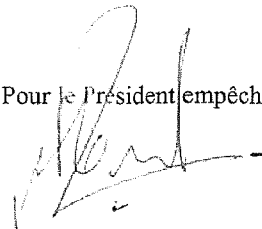 Pour le Président empêch